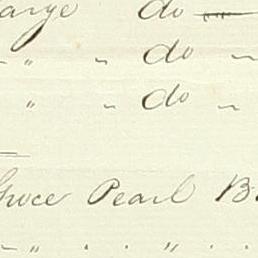 arge do
" " do "
" " do "
Groce Pearl B
" " "